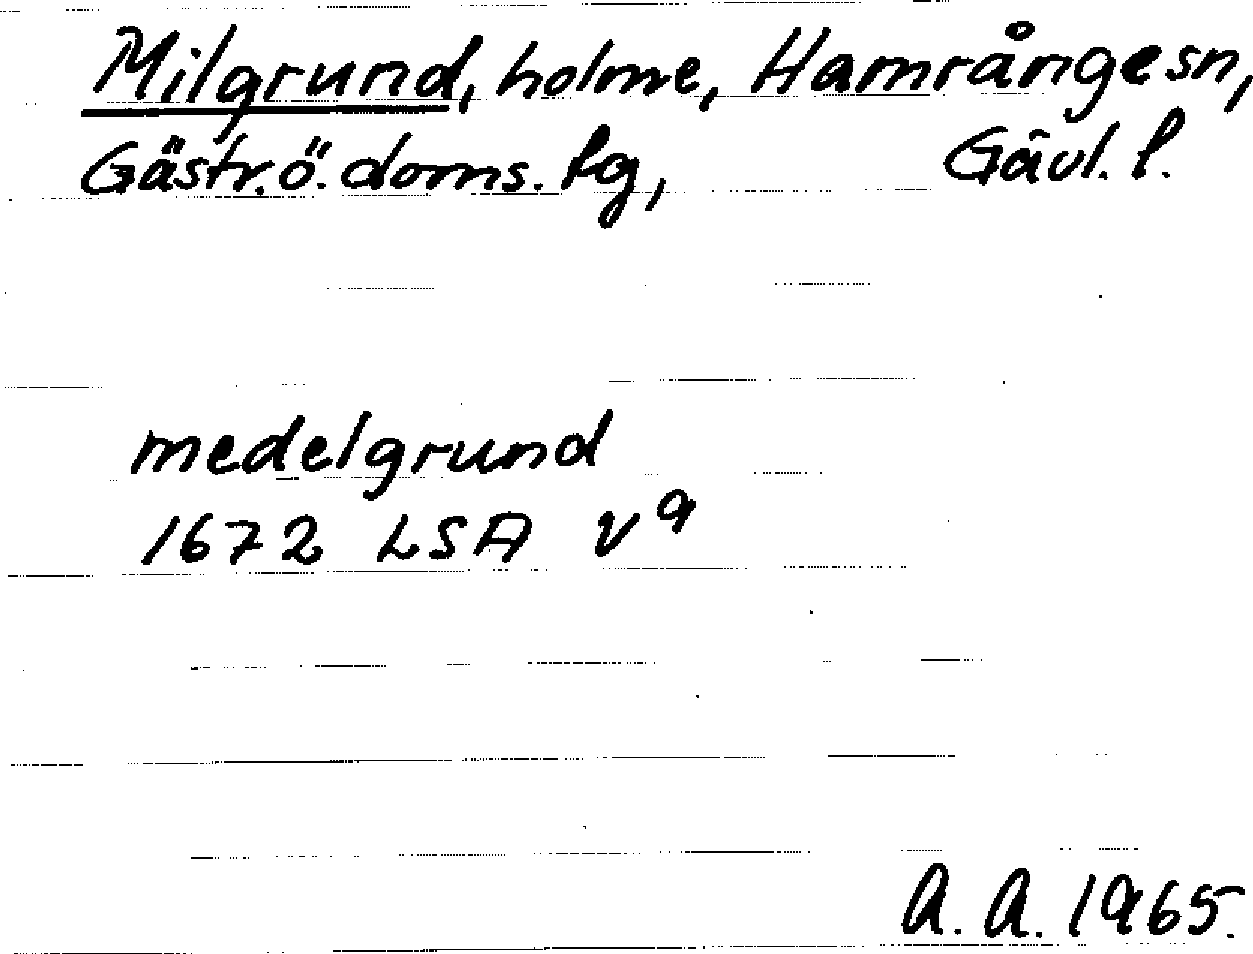 Milgrund, holme, Hamrånge sn,
Gästr. ö. doms. lg, Gävl. l.
medelgrund
1672 LSA v⁹
A. A. 1965.